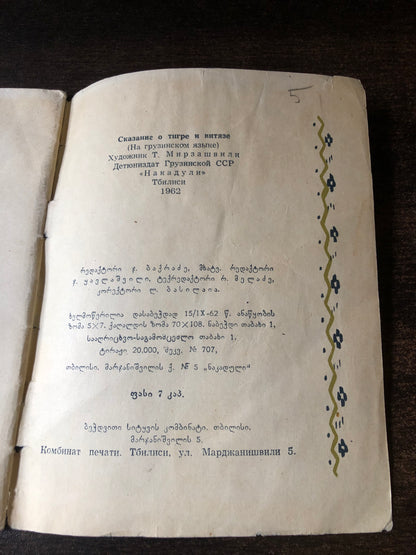 5
Сказание о тигре и витязе
(На грузинском языке)
Художник Т. Мирзашвили
Детюниздат Грузинской ССР
«Накадули»
Тбилиси
1962
რედაქტორი ჯ. ბაქრაძე, მხატვ. რედაქტორი
ტექრედაქტორი რ. მელაძე,
კორექტორი ლ. ბასილაია.
ხელმოწერილია დასაბეჭდად 15/IX-62 წ. ანაწყობის
ზომა 5×7. ქაღალდის ზომა 70×108. ნაბეჭდი თაბახი 1,
სააღრიცხვო-საგამომცემლო თაბახი 1,
ტირაჟი 20,000, შეკვ. № 707,
თბილისი. მარჯანიშვილის ქ. № 5 „ნაკადული“
ფასი 7 კაპ.
ბეჭდვითი სიტყვის კომბინატი. თბილისი.
მარჯანიშვილის 5.
Комбинат печати. Тбилиси, ул. Марджанишвили 5.